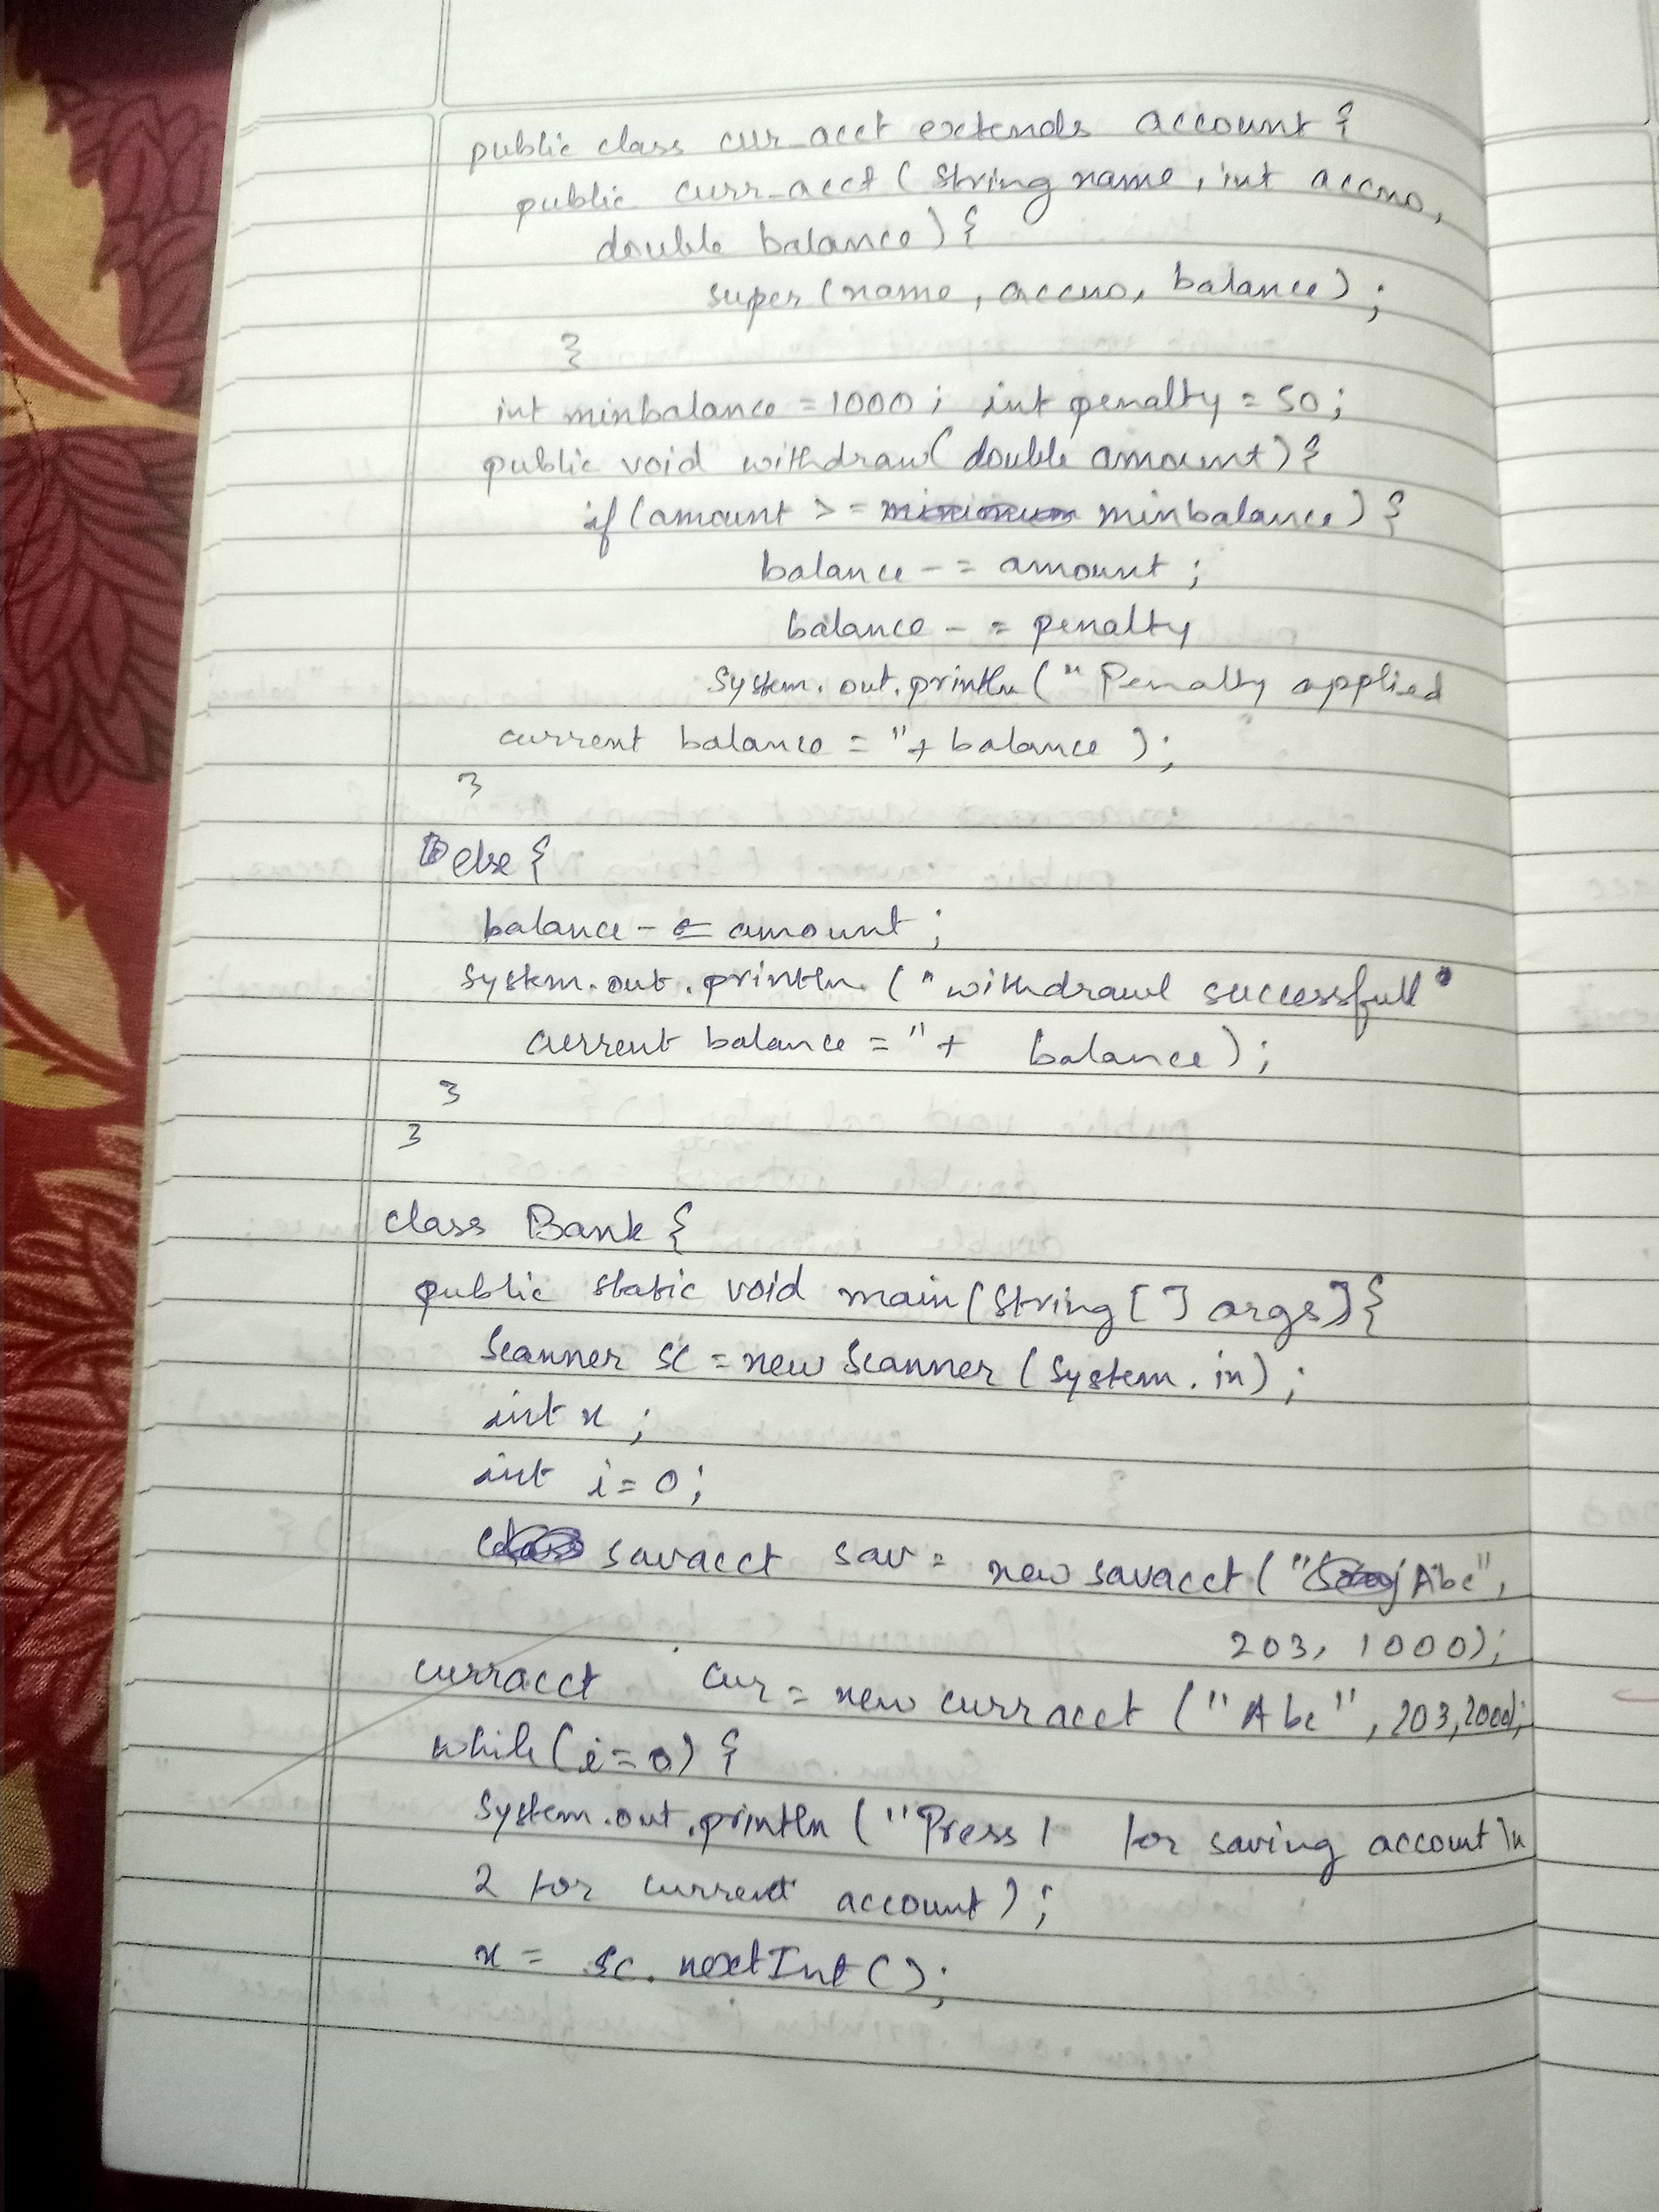 public class cur_acct extends account {
public curr_acct (String name, int accno,
double balance) {
super (name, accno, balance) ;
}
int minbalance = 1000 ; int penalty = 50 ;
public void withdraw( double amount) {
if (amount >= minimum minbalance) {
balance -= amount ;
balance -= penalty
System.out.println (" Penalty applied
current balance = "+ balance ) ;
}
else {
balance -= amount ;
System.out.println ("withdrawl successfull
current balance = "+ balance) ;
}
}
class Bank {
public static void main (String [] args) {
Scanner sc = new Scanner (System.in) ;
int x ;
int i = 0 ;
savacct sav = new savacct (" Abc",
203, 1000) ;
curracct cur = new curracct ("Abc", 203, 2000) ;
while (i=0) {
System.out.println ("Press 1 for saving account \n
2 for current account) ;
x = sc. nextInt () ;